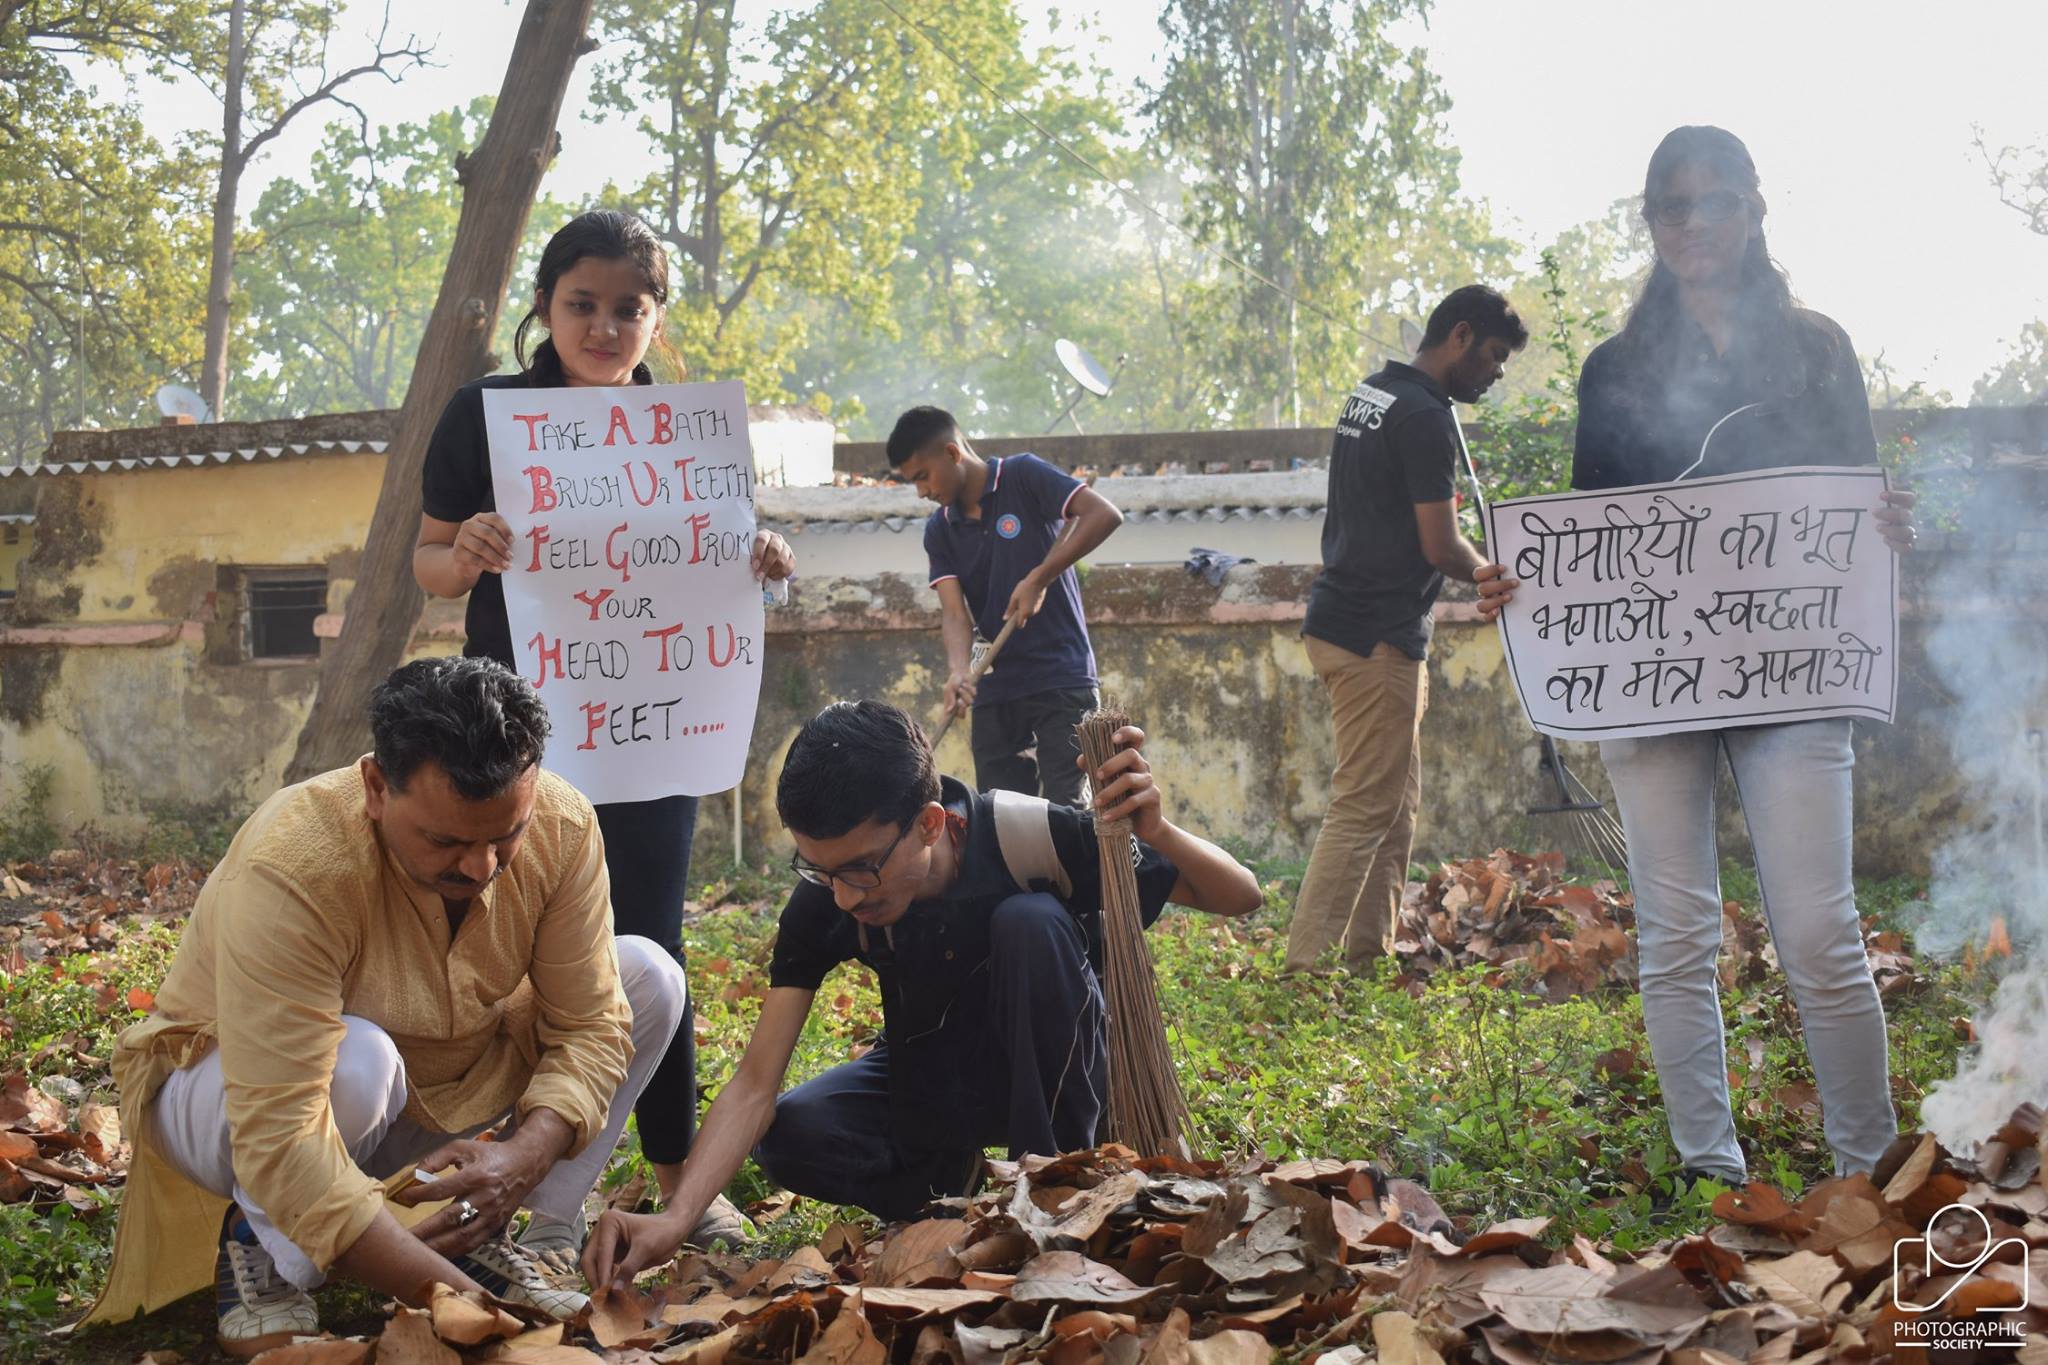 TAKE A BATH
BRUSH UR TEETH,
FEEL GOOD FROM
YOUR
HEAD TO UR
FEET......
बीमारियों का भूत
भगाओ, स्वच्छता
का मंत्र अपनाओ
PHOTOGRAPHIC
SOCIETY